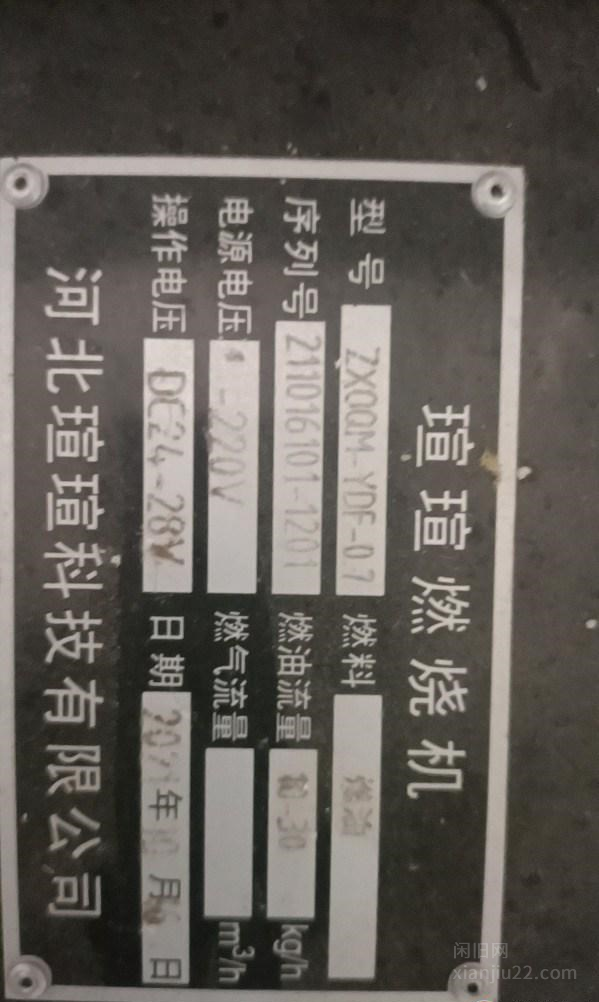 瑄瑄燃烧机
型号 ZXOQM-YDF-0.7 燃料
序列号 211016101-1201 燃油流量 10-30 kg/h
电源电压 -220V 燃气流量 m³/h
操作电压 DC24-28V 日期 2021年10月 日
河北瑄瑄科技有限公司
闲旧网
xianjiu22.com